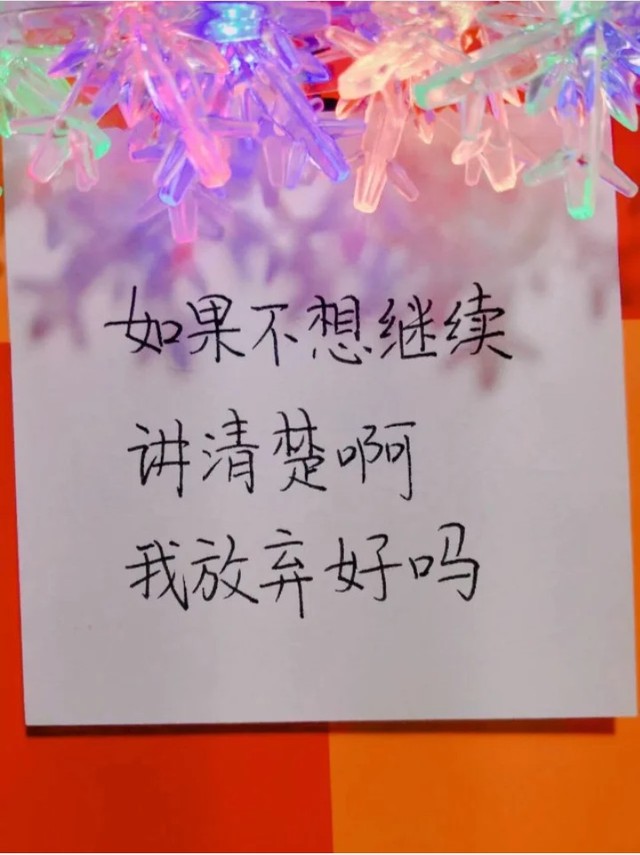 如果不想继续
讲清楚啊
我放弃好吗